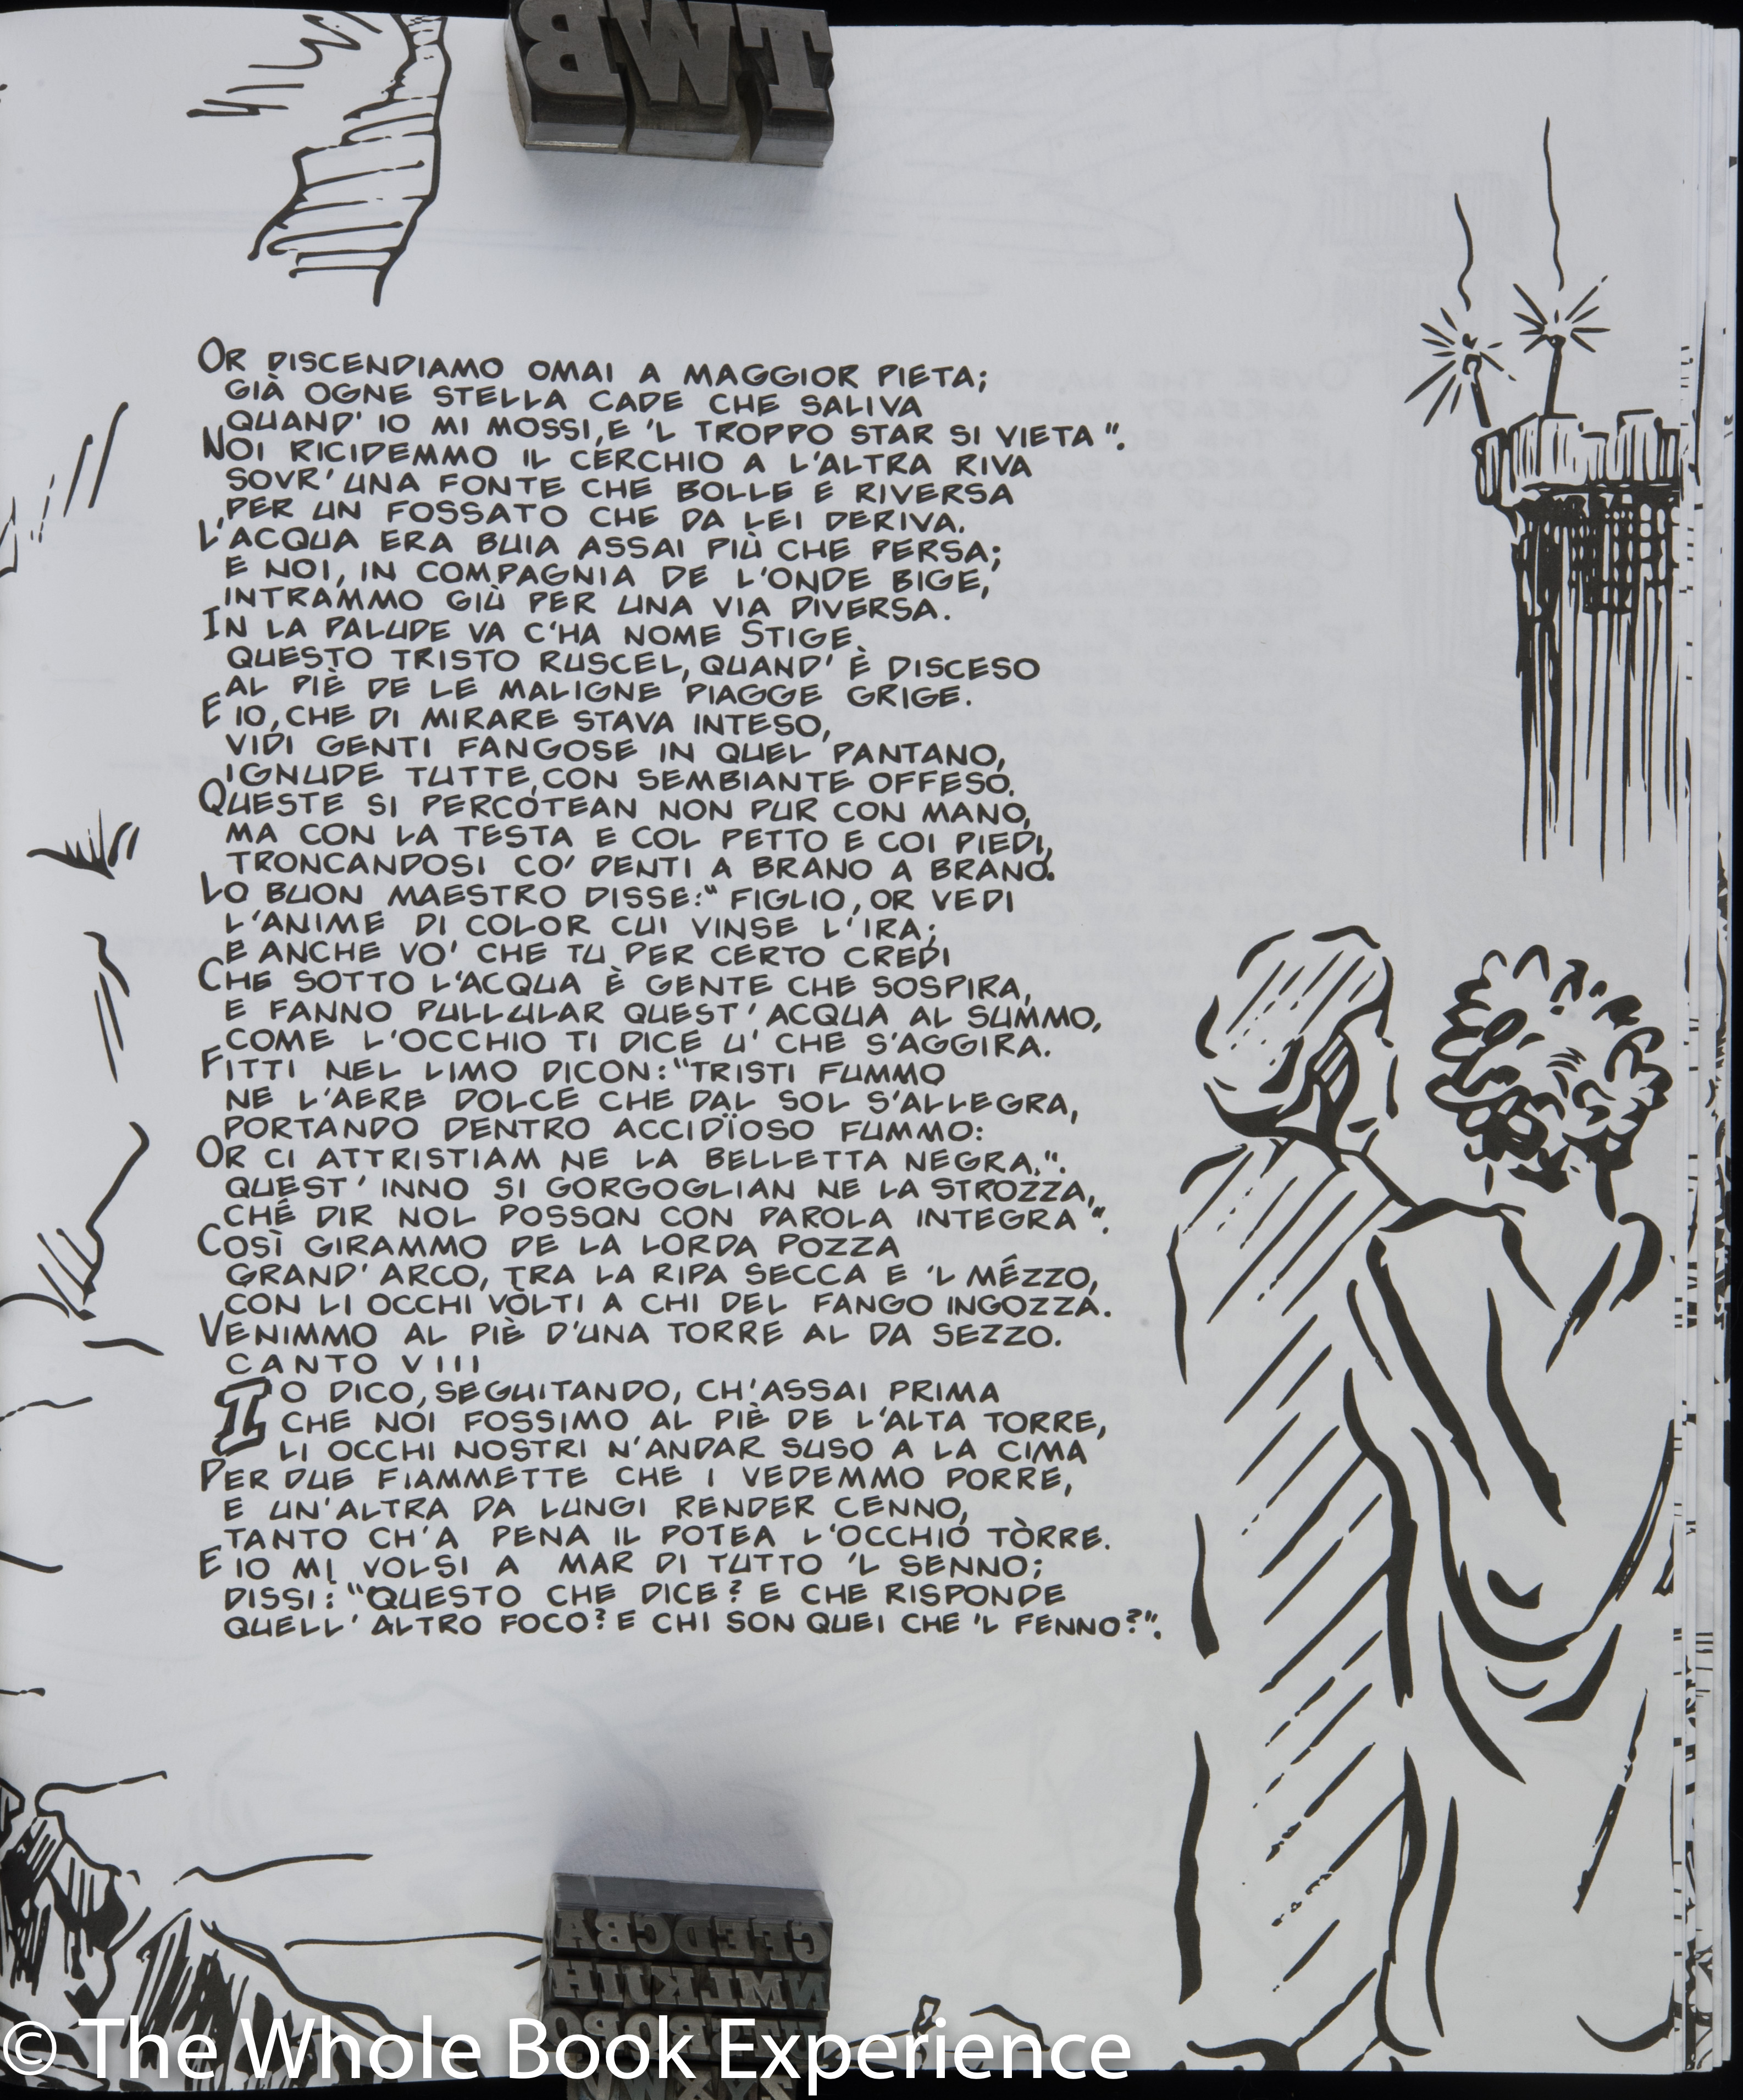 TMB
OR DISCENDIAMO OMAI A MAGGIOR PIETA;
GIÀ OGNE STELLA CADE CHE SALIVA
QUAND' IO MI MOSSI, E 'L TROPPO STAR SI VIETA".
NOI RICIDEMMO IL CERCHIO A L'ALTRA RIVA
SOVR' UNA FONTE CHE BOLLE E RIVERSA
PER UN FOSSATO CHE DA LEI DERIVA.
L'ACQUA ERA BUIA ASSAI PIÙ CHE PERSA;
E NOI, IN COMPAGNIA DE L'ONDE BIGE,
INTRAMMO GIÙ PER UNA VIA DIVERSA.
IN LA PALUDE VA C'HA NOME STIGE
QUESTO TRISTO RUSCEL, QUAND' È DISCESO
AL PIÈ DE LE MALIGNE PIAGGE GRIGE.
E IO, CHE DI MIRARE STAVA INTESO,
VIDI GENTI FANGOSE IN QUEL PANTANO,
IGNUDE TUTTE, CON SEMBIANTE OFFESO.
QUESTE SI PERCOTEAN NON PUR CON MANO,
MA CON LA TESTA E COL PETTO E COI PIEDI,
TRONCANDOSI CO' DENTI A BRANO A BRANO.
LO BUON MAESTRO DISSE: "FIGLIO, OR VEDI
L'ANIME DI COLOR CUI VINSE L'IRA;
E ANCHE VO' CHE TU PER CERTO CREDI
CHE SOTTO L'ACQUA È GENTE CHE SOSPIRA,
E FANNO PULLULAR QUEST' ACQUA AL SUMMO,
COME L'OCCHIO TI DICE U' CHE S'AGGIRA.
FITTI NEL LIMO DICON: "TRISTI FUMMO
NE L'AERE DOLCE CHE DAL SOL S'ALLEGRA,
PORTANDO DENTRO ACCIDÏOSO FUMMO:
OR CI ATTRISTIAM NE LA BELLETTA NEGRA.".
QUEST' INNO SI GORGOGLIAN NE LA STROZZA,
CHÉ DIR NOL POSSON CON PAROLA INTEGRA".
COSÌ GIRAMMO DE LA LORDA POZZA
GRAND' ARCO, TRA LA RIPA SECCA E 'L MÉZZO,
CON LI OCCHI VÒLTI A CHI DEL FANGO INGOZZA.
VENIMMO AL PIÈ D'UNA TORRE AL DA SEZZO.
CANTO VIII
IO DICO, SEGUITANDO, CH'ASSAI PRIMA
CHE NOI FOSSIMO AL PIÈ DE L'ALTA TORRE,
LI OCCHI NOSTRI N'ANDAR SUSO A LA CIMA
PER DUE FIAMMETTE CHE I VEDEMMO PORRE,
E UN'ALTRA DA LUNGI RENDER CENNO,
TANTO CH'A PENA IL POTEA L'OCCHIO TÒRRE.
E IO MI VOLSI A MAR DI TUTTO 'L SENNO;
DISSI: "QUESTO CHE DICE? E CHE RISPONDE
QUELL' ALTRO FOCO? E CHI SON QUEI CHE 'L FENNO?".
ABCDEFG
HIJKLMN
© The Whole Book Experience